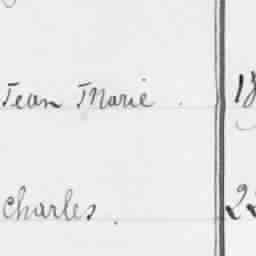 Jean Marie 18
Charles. 22